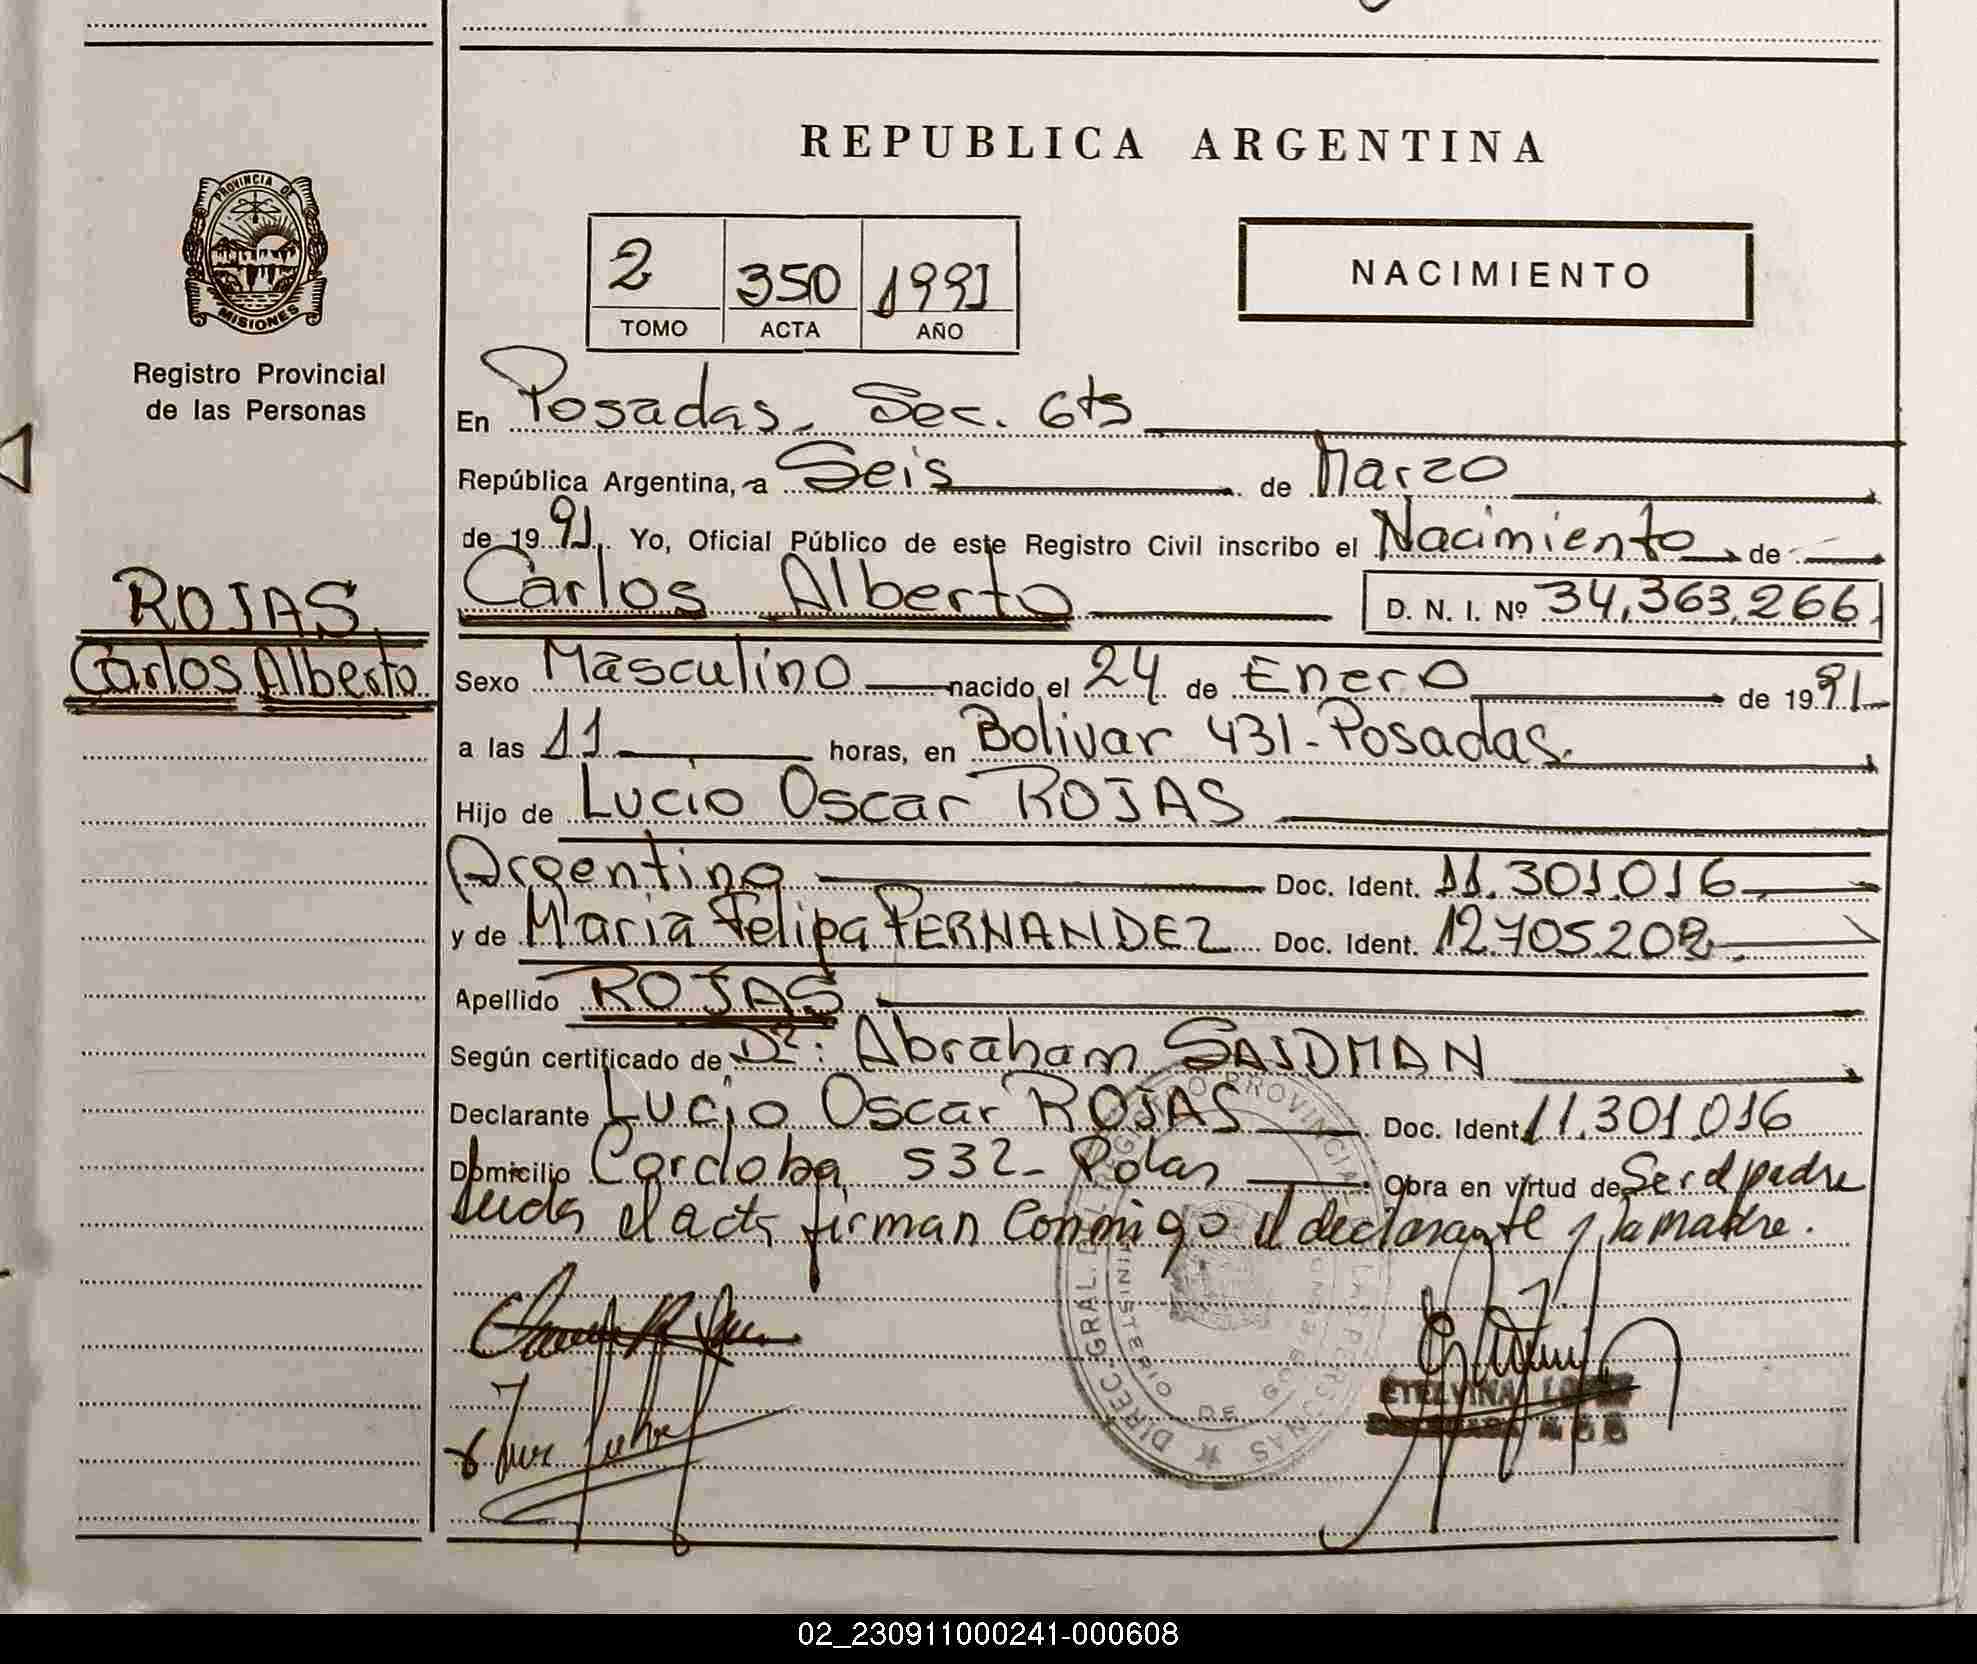 REPUBLICA ARGENTINA
PROVINCIA DE
MISIONES
Registro Provincial
de las Personas
ROJAS
Carlos Alberto
2 350 1991
TOMO ACTA AÑO
NACIMIENTO
En Posadas, Sec. 6ta
República Argentina, a Seis de Marzo
de 1991. Yo, Oficial Público de este Registro Civil inscribo el Nacimiento de
Carlos Alberto D. N. I. Nº 34,363,266
Sexo Masculino nacido el 24 de Enero de 1991
a las 11 horas, en Bolivar 431-Posadas.
Hijo de Lucio Oscar ROJAS
Argentino Doc. Ident. 11.301.016
y de Maria Felipa FERNANDEZ Doc. Ident. 12.705.202
Apellido ROJAS
Según certificado de Dr: Abraham SAIDMAN
Declarante Lucio Oscar ROJAS Doc. Ident. 11.301.016
Domicilio Cordoba 532- Pdas Obra en virtud de Ser el padre
Leida el acta firman conmigo el declarante y la madre.
DIREC. GRAL. PROVINCIAL LAS PERSONAS
MINISTERIO DE
ETELVINA
02_230911000241-000608